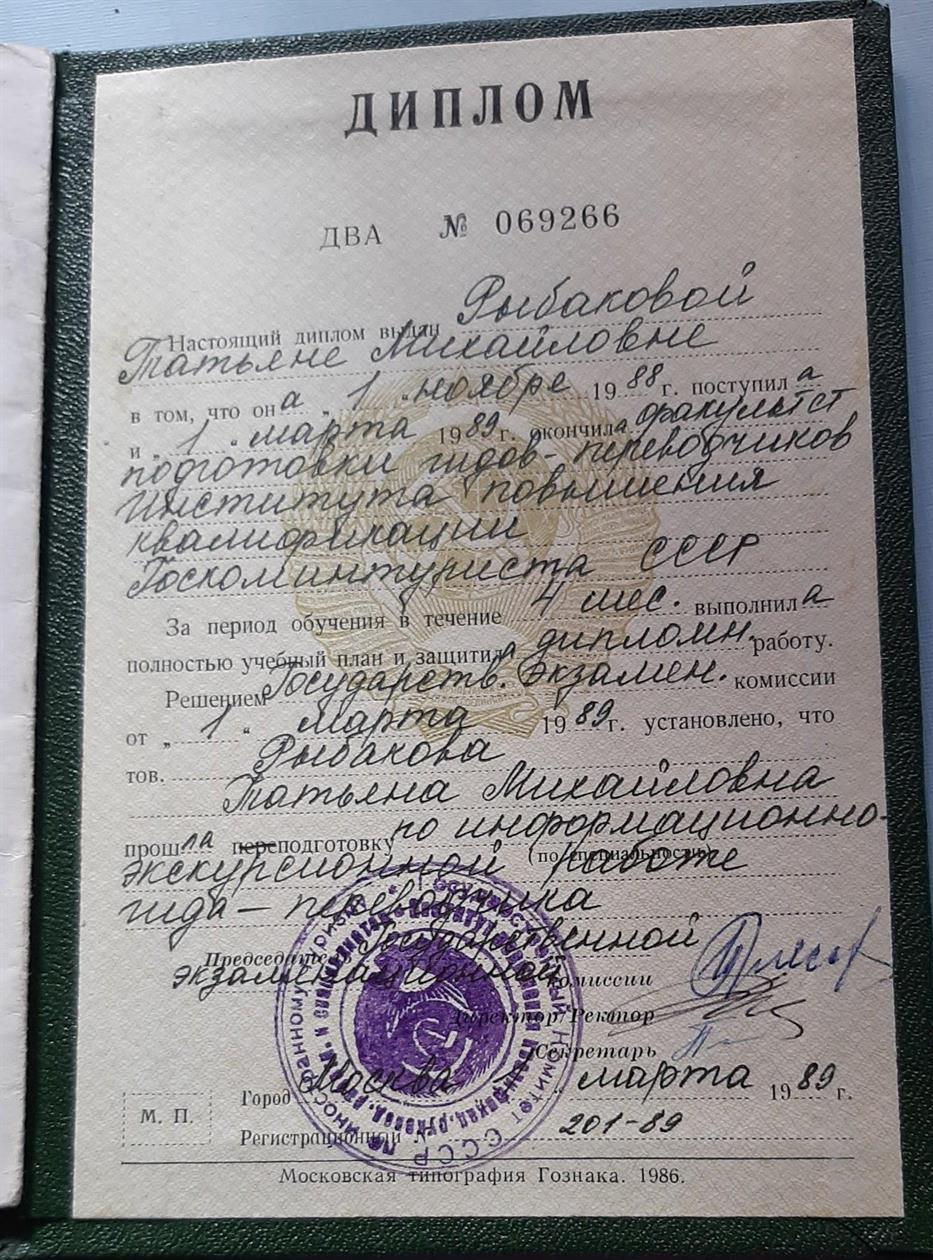 ДИПЛОМ
ДВА № 069266
Настоящий диплом выдан Рыбаковой
Татьяне Михайловне
в том, что она „ 1 “ ноября 1988 г. поступила
и „ 1 “ марта 1989 г. окончила факультет
подготовки гидов-переводчиков
Института повышения
квалификации
Госкоминтуриста СССР
За период обучения в течение 4 мес. выполнила
полностью учебный план и защитила дипломн. работу.
Решением Государств. Экзамен. комиссии
от „ 1 “ марта 1989 г. установлено, что
тов. Рыбакова
Татьяна Михайловна
прошла переподготовку по информационно-
(по специальности)
экскурсионной работе
гида-переводчика
Председатель Государственной
экзаменационной комиссии
Директор/Ректор
Секретарь
Город Москва марта 1989 г.
М. П.
Регистрационный № 201-89
Московская типография Гознака. 1986.